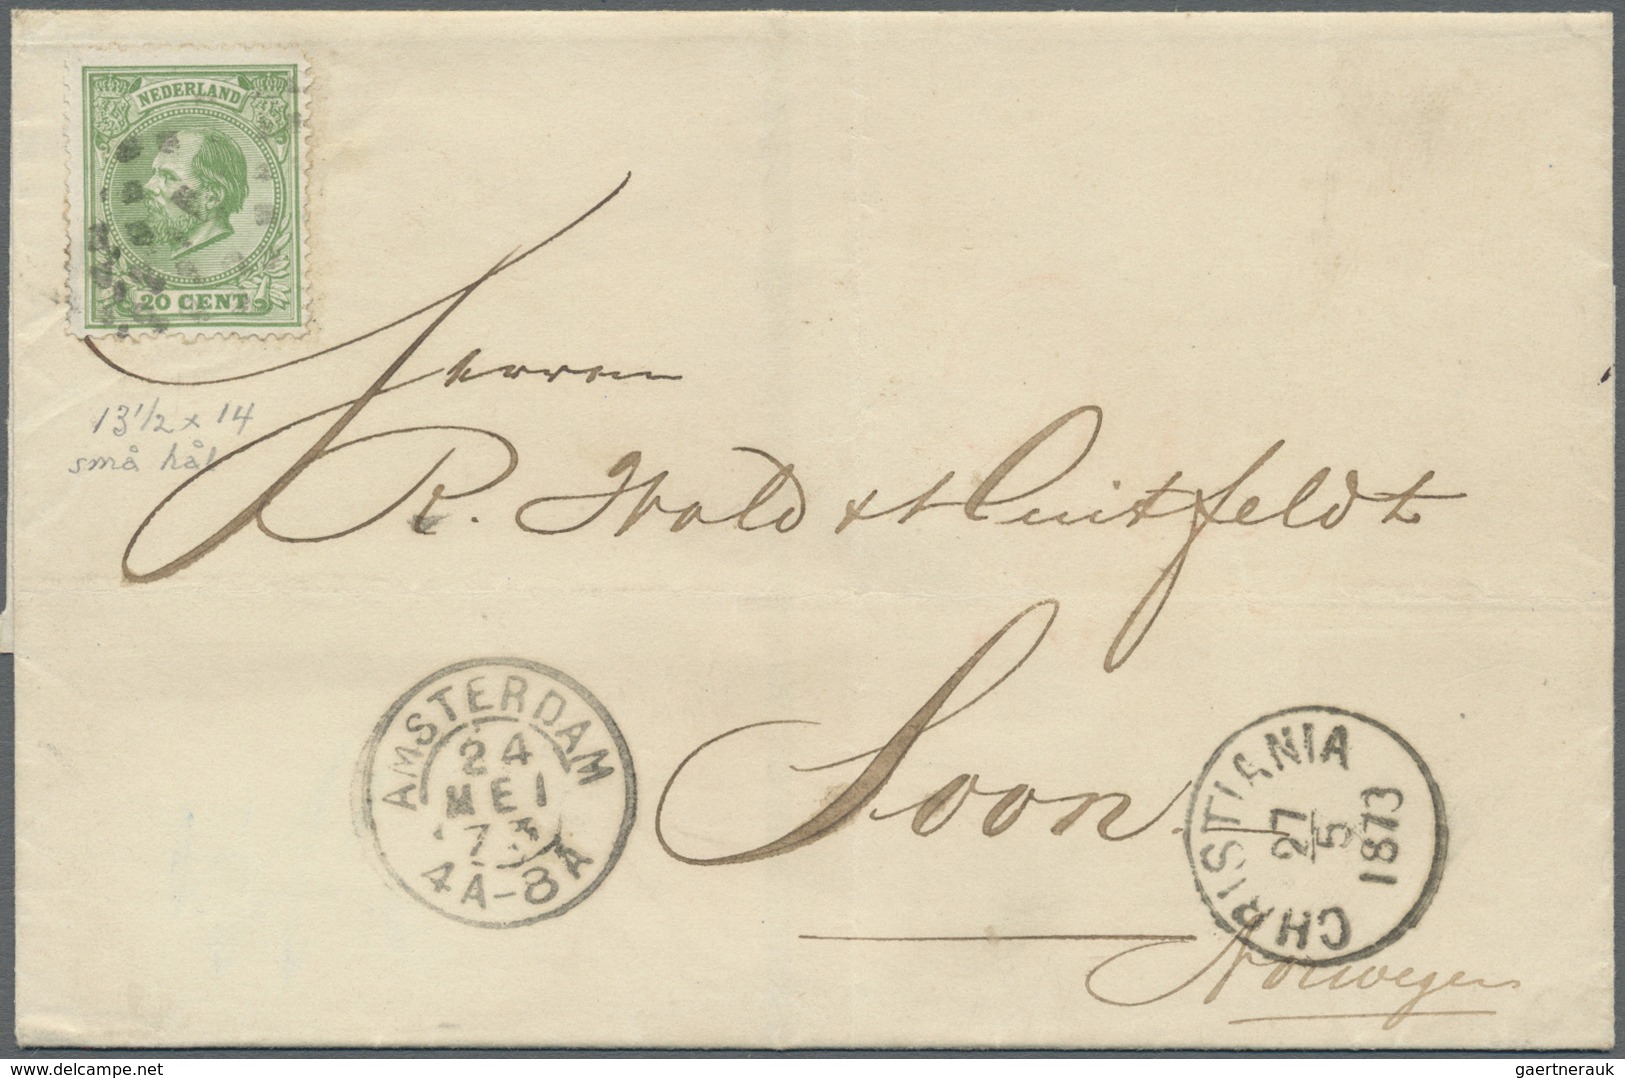 NEDERLAND
20 CENT
13 1/2 x 14
små hål
Herren
R. Wold & Huitfeldt
Soon.
Norwegen
AMSTERDAM
24
MEI
73
4A-8A
CHRISTIANIA
27
5
1873
delcampe.net
gaertnerauk